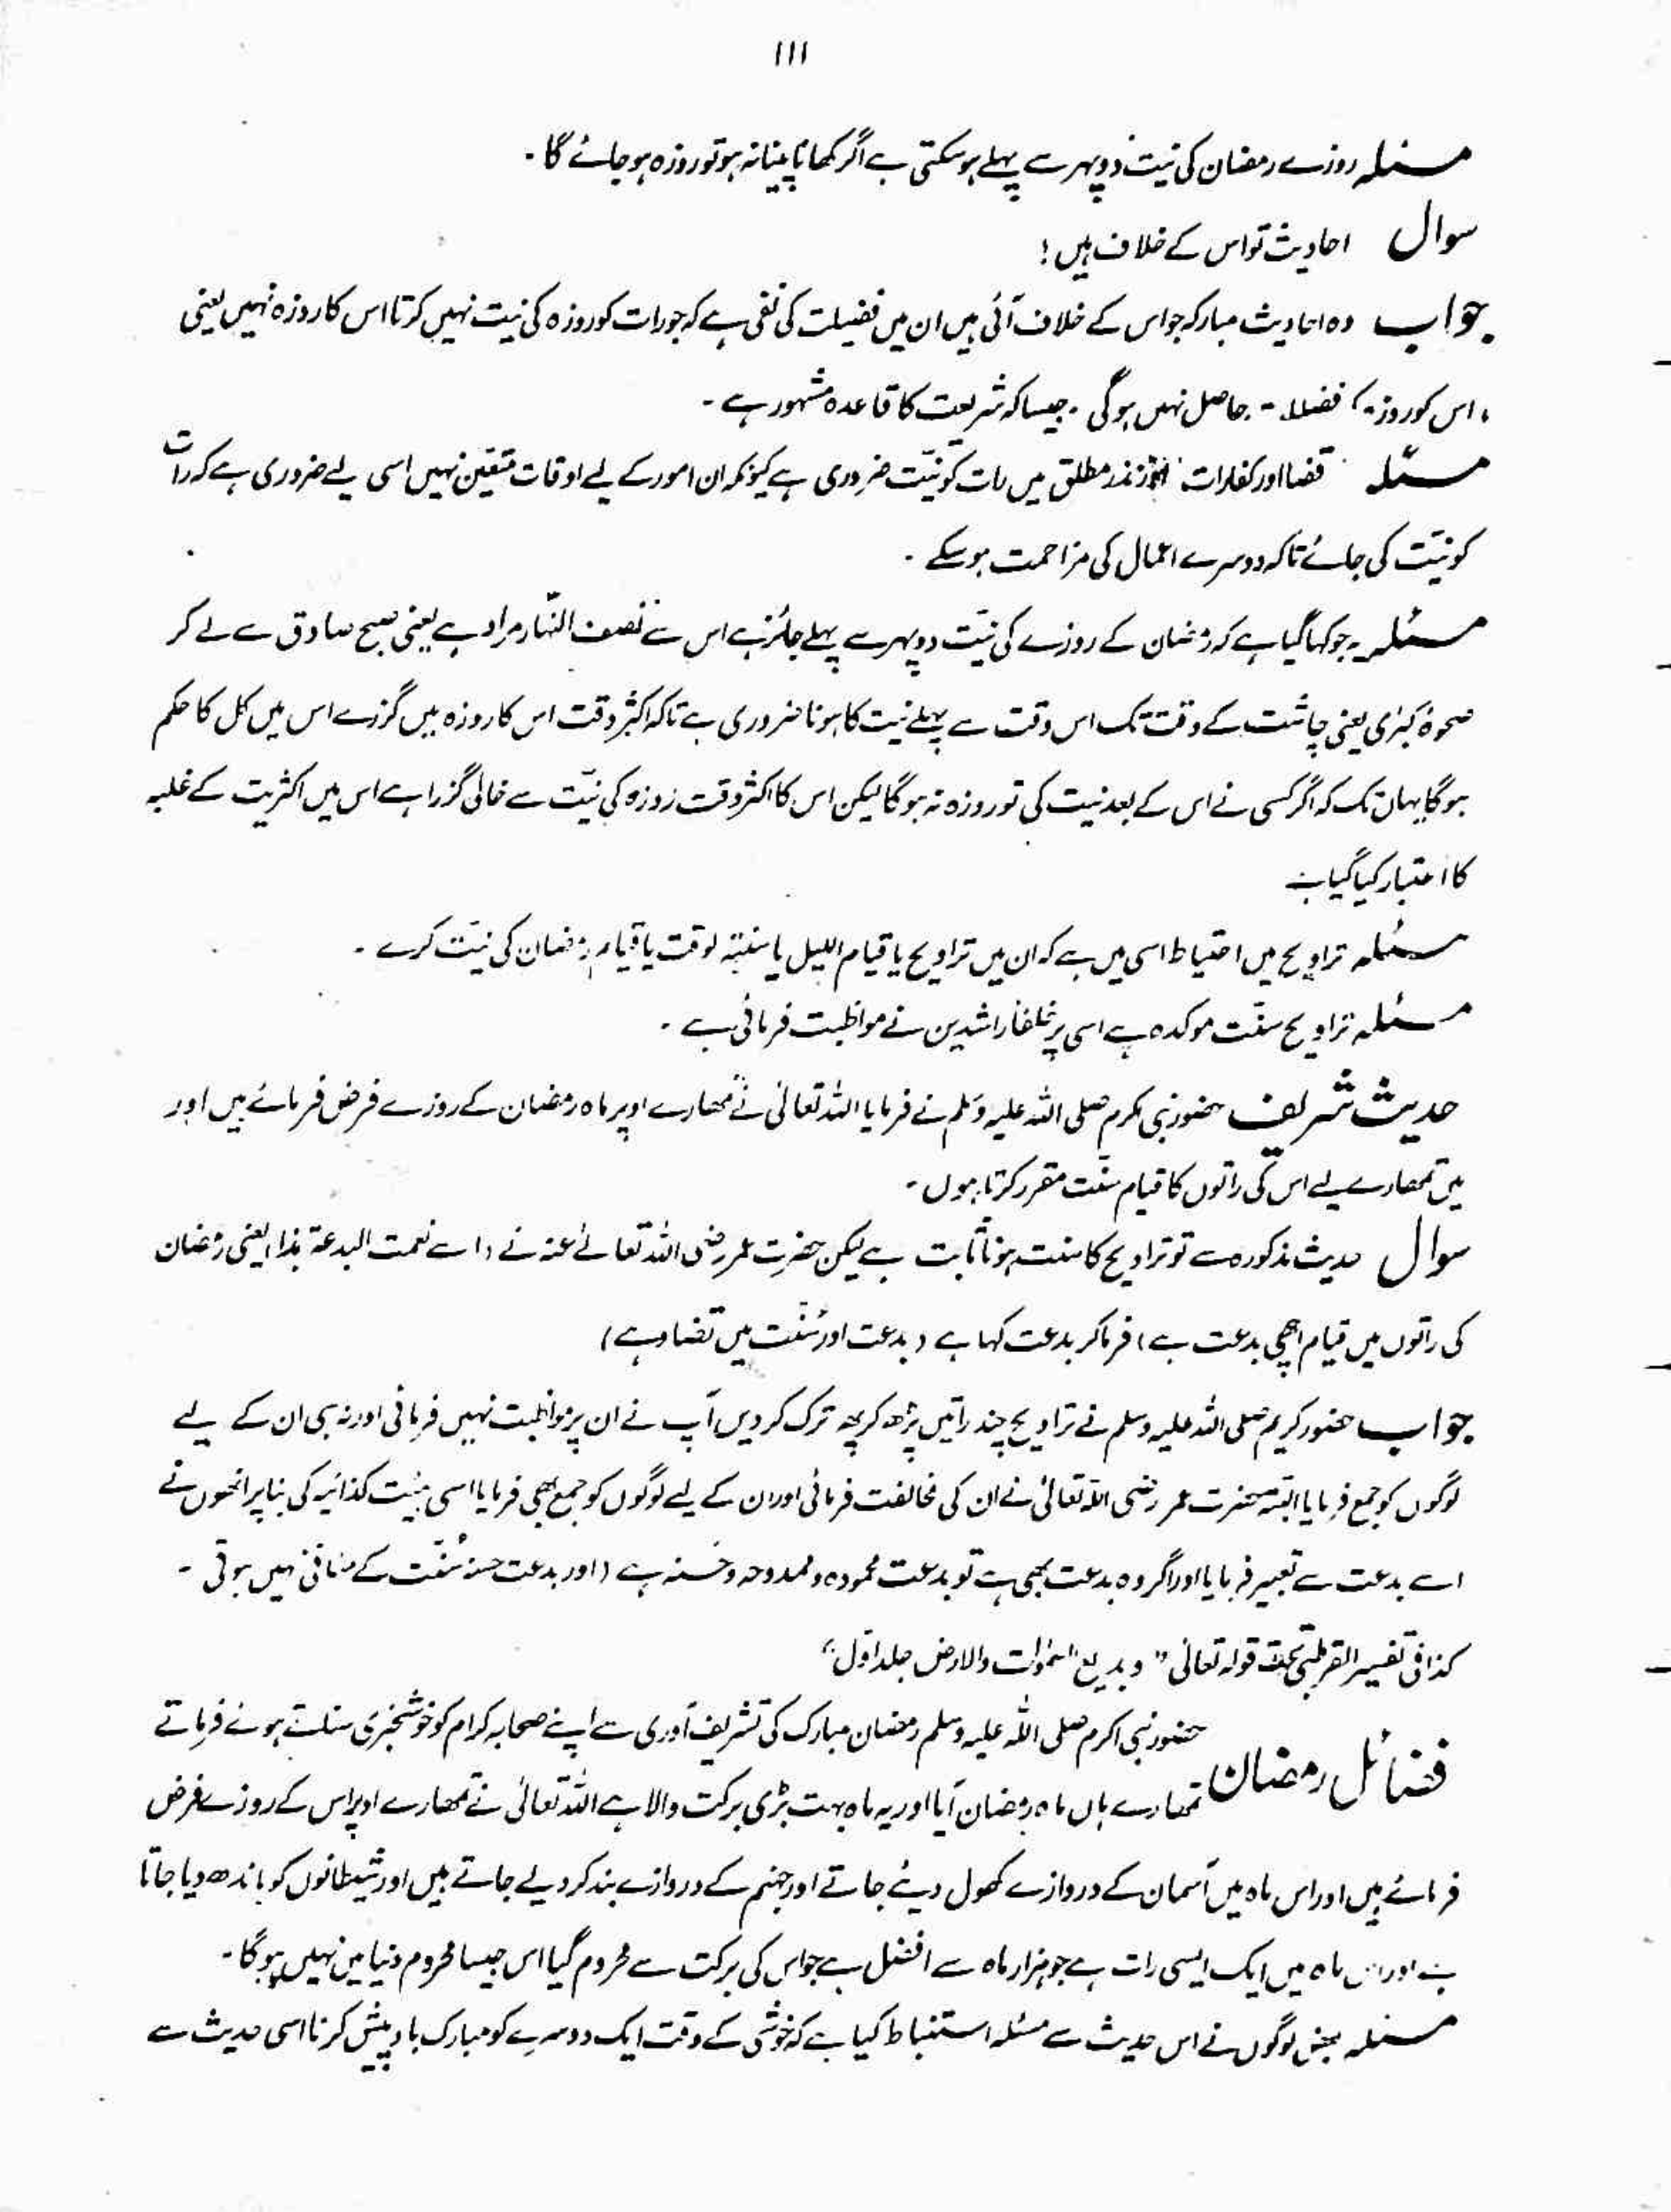 ۱۱۱
مسئلہ روزے رمضان کی نیت دوپہر سے پہلے ہو سکتی ہے اگر کھانا پینا نہ ہو تو روزہ ہو جائے گا ۔
سوال احادیث تو اس کے خلاف ہیں !
جواب وہ احادیث مبارکہ جو اس کے خلاف آئی ہیں ان میں فضیلت کی نفی ہے کہ جو رات کو روزہ کی نیت نہیں کرتا اس کا روزہ نہیں یعنی
اس کو روزہ حاصل نہیں ہوگی ۔ جیسا کہ شریعت کا قاعدہ مشہور ہے ۔
مسئلہ قضا اور کفارات نذر مطلق میں رات کو نیّت ضروری ہے کیونکہ ان امور کے لیے اوقات متعین نہیں اسی لیے ضروری ہے کہ رات
کو نیّت کی جائے تاکہ دوسرے اعمال کی مزاحمت ہو سکے ۔
مسئلہ یہ جو کہا گیا ہے کہ رمضان کے روزے کی نیّت دوپہر سے پہلے جائز ہے اس سے نصف النّہار مراد ہے یعنی صبح صادق سے لے کر
ضحوۃ کبرٰی یعنی چاشت کے وقت تک اس وقت سے پہلے نیت کا ہونا ضروری ہے تاکہ اکثر وقت اس کا روزہ میں گزرے اس میں کل کا حکم
ہوگا یہاں تک کہ اگر کسی نے اس کے بعد نیت کی تو روزہ نہ ہوگا لیکن اس کا اکثر وقت روزہ کی نیّت سے خالی گزرا ہے اس میں اکثریت کے غلبہ
کا اعتبار کیا گیا ہے
مسئلہ تراویح میں احتیاط اسی میں ہے کہ ان میں تراویح یا قیام اللیل یا سنّتہ لوقت یا قیام رمضان کی نیّت کرے ۔
مسئلہ تراویح سنّت موکدہ ہے اسی پر خلفا راشدین نے مواظبت فرمائی ہے ۔
حدیث شریف حضور نبی مکرم صلی اللہ علیہ وسلم نے فرمایا اللہ تعالٰی نے تمھارے اوپر ماہ رمضان کے روزے فرض فرمائے ہیں اور
میں تمھارے لیے اس کی راتوں کا قیام سنّت مقرر کرتا ہوں ۔
سوال حدیث مذکورہ سے تو تراویح کا سنت ہونا ثابت ہے لیکن حضرت عمر رضی اللہ تعالےٰ عنہ نے (اسے نعمت البدعۃ ہذا) یعنی رمضان
کی راتوں میں قیام اچھی بدعت ہے) فرما کر بدعت کہا ہے (بدعت اور سُنّت میں تضاد ہے)
جواب حضور کریم صلی اللہ علیہ وسلم نے تراویح چند راتیں پڑھ کر پھر ترک کر دیں آپ نے ان پر مواظبت نہیں فرمائی اور نہ ہی ان کے لیے
لوگوں کو جمع فرمایا البتہ حضرت عمر رضی اللہ تعالیٰ نے ان کی مخالفت فرمائی اور ان کے لیے لوگوں کو جمع بھی فرمایا اسی ہئیت کذائیہ کی بنا پر انھوں نے
اسے بدعت سے تعبیر فرمایا اور اگر وہ بدعت بھی ہے تو بدعت محمودہ و ممدوحہ و حَسنہ ہے (اور بدعت حسنہ سُنّت کے منافی نہیں ہوتی ۔
کذا فی تفسیر القرطبی تحت قولہ تعالٰی " وبدیع السمٰوات والارض جلد اوّل"
فضائل رمضان حضور نبی اکرم صلی اللہ علیہ وسلم رمضان مبارک کی تشریف آوری سے اپنے صحابہ کرام کو خوشخبری سناتے ہوئے فرماتے
تمھارے ہاں ماہ رمضان آیا اور یہ ماہ بہت بڑی برکت والا ہے اللہ تعالٰی نے تمھارے اوپر اس کے روزے فرض
فرمائے ہیں اور اس ماہ میں آسمان کے دروازے کھول دیئے جاتے اور جہنم کے دروازے بند کر دیے جاتے ہیں اور شیطانوں کو باندھ دیا جاتا
ہے اور اس ماہ میں ایک ایسی رات ہے جو ہزار ماہ سے افضل ہے جو اس کی برکت سے محروم گیا اس جیسا محروم دنیا میں نہیں ہوگا ۔
مسئلہ بعض لوگوں نے اس حدیث سے مسئلہ استنباط کیا ہے کہ خوشی کے وقت ایک دوسرے کو مبارک باد پیش کرنا اسی حدیث سے